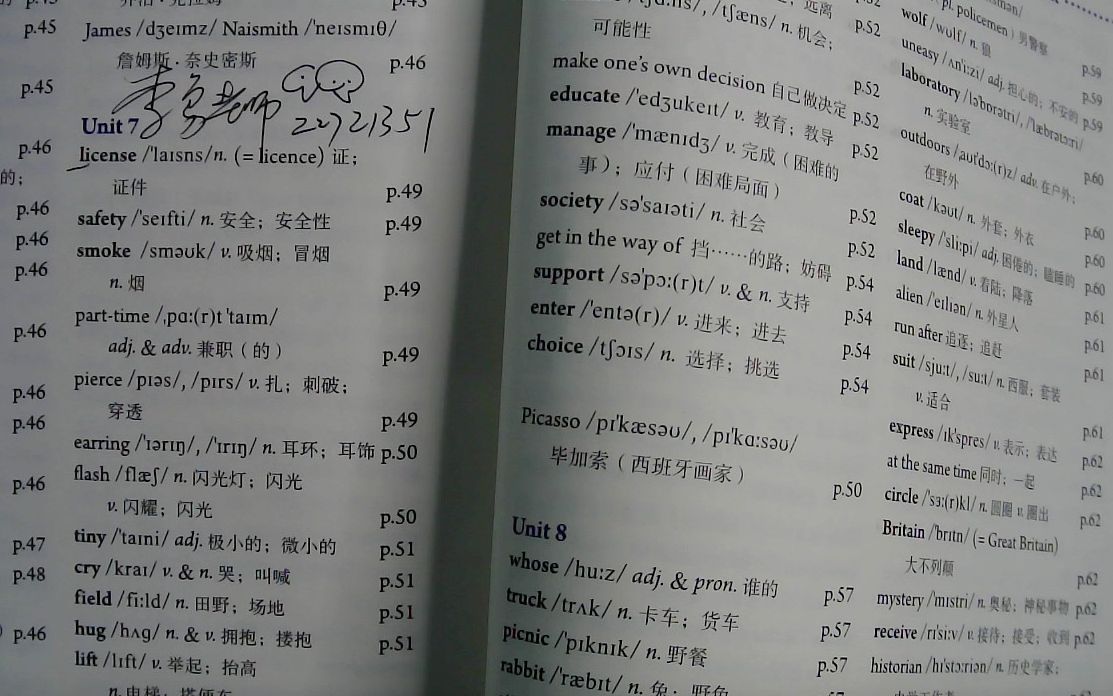 p.45
p.45
p.46
的；
p.46
p.46
p.46
p.46
p.46
p.46
p.46
p.47
p.48
p.46
p.45
James /dʒeɪmz/ Naismith /ˈneɪsmɪθ/
詹姆斯·奈史密斯 p.46
李勇老师
22721351
Unit 7
license /ˈlaɪsns/ n. (= licence) 证；
证件 p.49
safety /ˈseɪfti/ n. 安全；安全性 p.49
smoke /sməʊk/ v. 吸烟；冒烟
n. 烟 p.49
part-time /ˌpɑː(r)t ˈtaɪm/
adj. & adv. 兼职（的） p.49
pierce /pɪəs/, /pɪrs/ v. 扎；刺破；
穿透 p.49
earring /ˈɪərɪŋ/, /ˈɪrɪŋ/ n. 耳环；耳饰 p.50
flash /flæʃ/ n. 闪光灯；闪光
v. 闪耀；闪光 p.50
tiny /ˈtaɪni/ adj. 极小的；微小的 p.51
cry /kraɪ/ v. & n. 哭；叫喊 p.51
field /fiːld/ n. 田野；场地 p.51
hug /hʌɡ/ n. & v. 拥抱；搂抱 p.51
lift /lɪft/ v. 举起；抬高
n. 电梯；搭便车
/tʃæns/ n. 机会；
可能性 p.52
make one's own decision 自己做决定 p.52
educate /ˈedʒukeɪt/ v. 教育；教导 p.52
manage /ˈmænɪdʒ/ v. 完成（困难的
事）；应付（困难局面） p.52
society /səˈsaɪəti/ n. 社会 p.52
get in the way of 挡……的路；妨碍 p.52
support /səˈpɔː(r)t/ v. & n. 支持 p.54
enter /ˈentə(r)/ v. 进来；进去 p.54
choice /tʃɔɪs/ n. 选择；挑选 p.54
p.54
Picasso /pɪˈkæsəʊ/, /pɪˈkɑːsəʊ/
毕加索（西班牙画家） p.50
Unit 8
whose /huːz/ adj. & pron. 谁的 p.57
truck /trʌk/ n. 卡车；货车 p.57
picnic /ˈpɪknɪk/ n. 野餐 p.57
rabbit /ˈræbɪt/ n. 兔；野兔
pl. policemen）男警察 p.59
wolf /wʊlf/ n. 狼 p.59
uneasy /ʌnˈiːzi/ adj. 担心的；不安的 p.59
laboratory /ləˈbɒrətri/, /ˈlæbrətɔːri/
n. 实验室 p.60
outdoors /ˌaʊtˈdɔː(r)z/ adv. 在户外；
在野外 p.60
coat /kəʊt/ n. 外套；外衣 p.60
sleepy /ˈsliːpi/ adj. 困倦的；瞌睡的 p.60
land /lænd/ v. 着陆；降落 p.61
alien /ˈeɪliən/ n. 外星人 p.61
run after 追逐；追赶 p.61
suit /sjuːt/, /suːt/ n. 西服；套装
v. 适合 p.61
express /ɪkˈspres/ v. 表示；表达 p.62
at the same time 同时；一起 p.62
circle /ˈsɜː(r)kl/ n. 圆圈 v. 圈出 p.62
Britain /ˈbrɪtn/ (= Great Britain)
大不列颠 p.62
mystery /ˈmɪstri/ n. 奥秘；神秘事物 p.62
receive /rɪˈsiːv/ v. 接待；接受；收到 p.62
historian /hɪˈstɔːriən/ n. 历史学家；